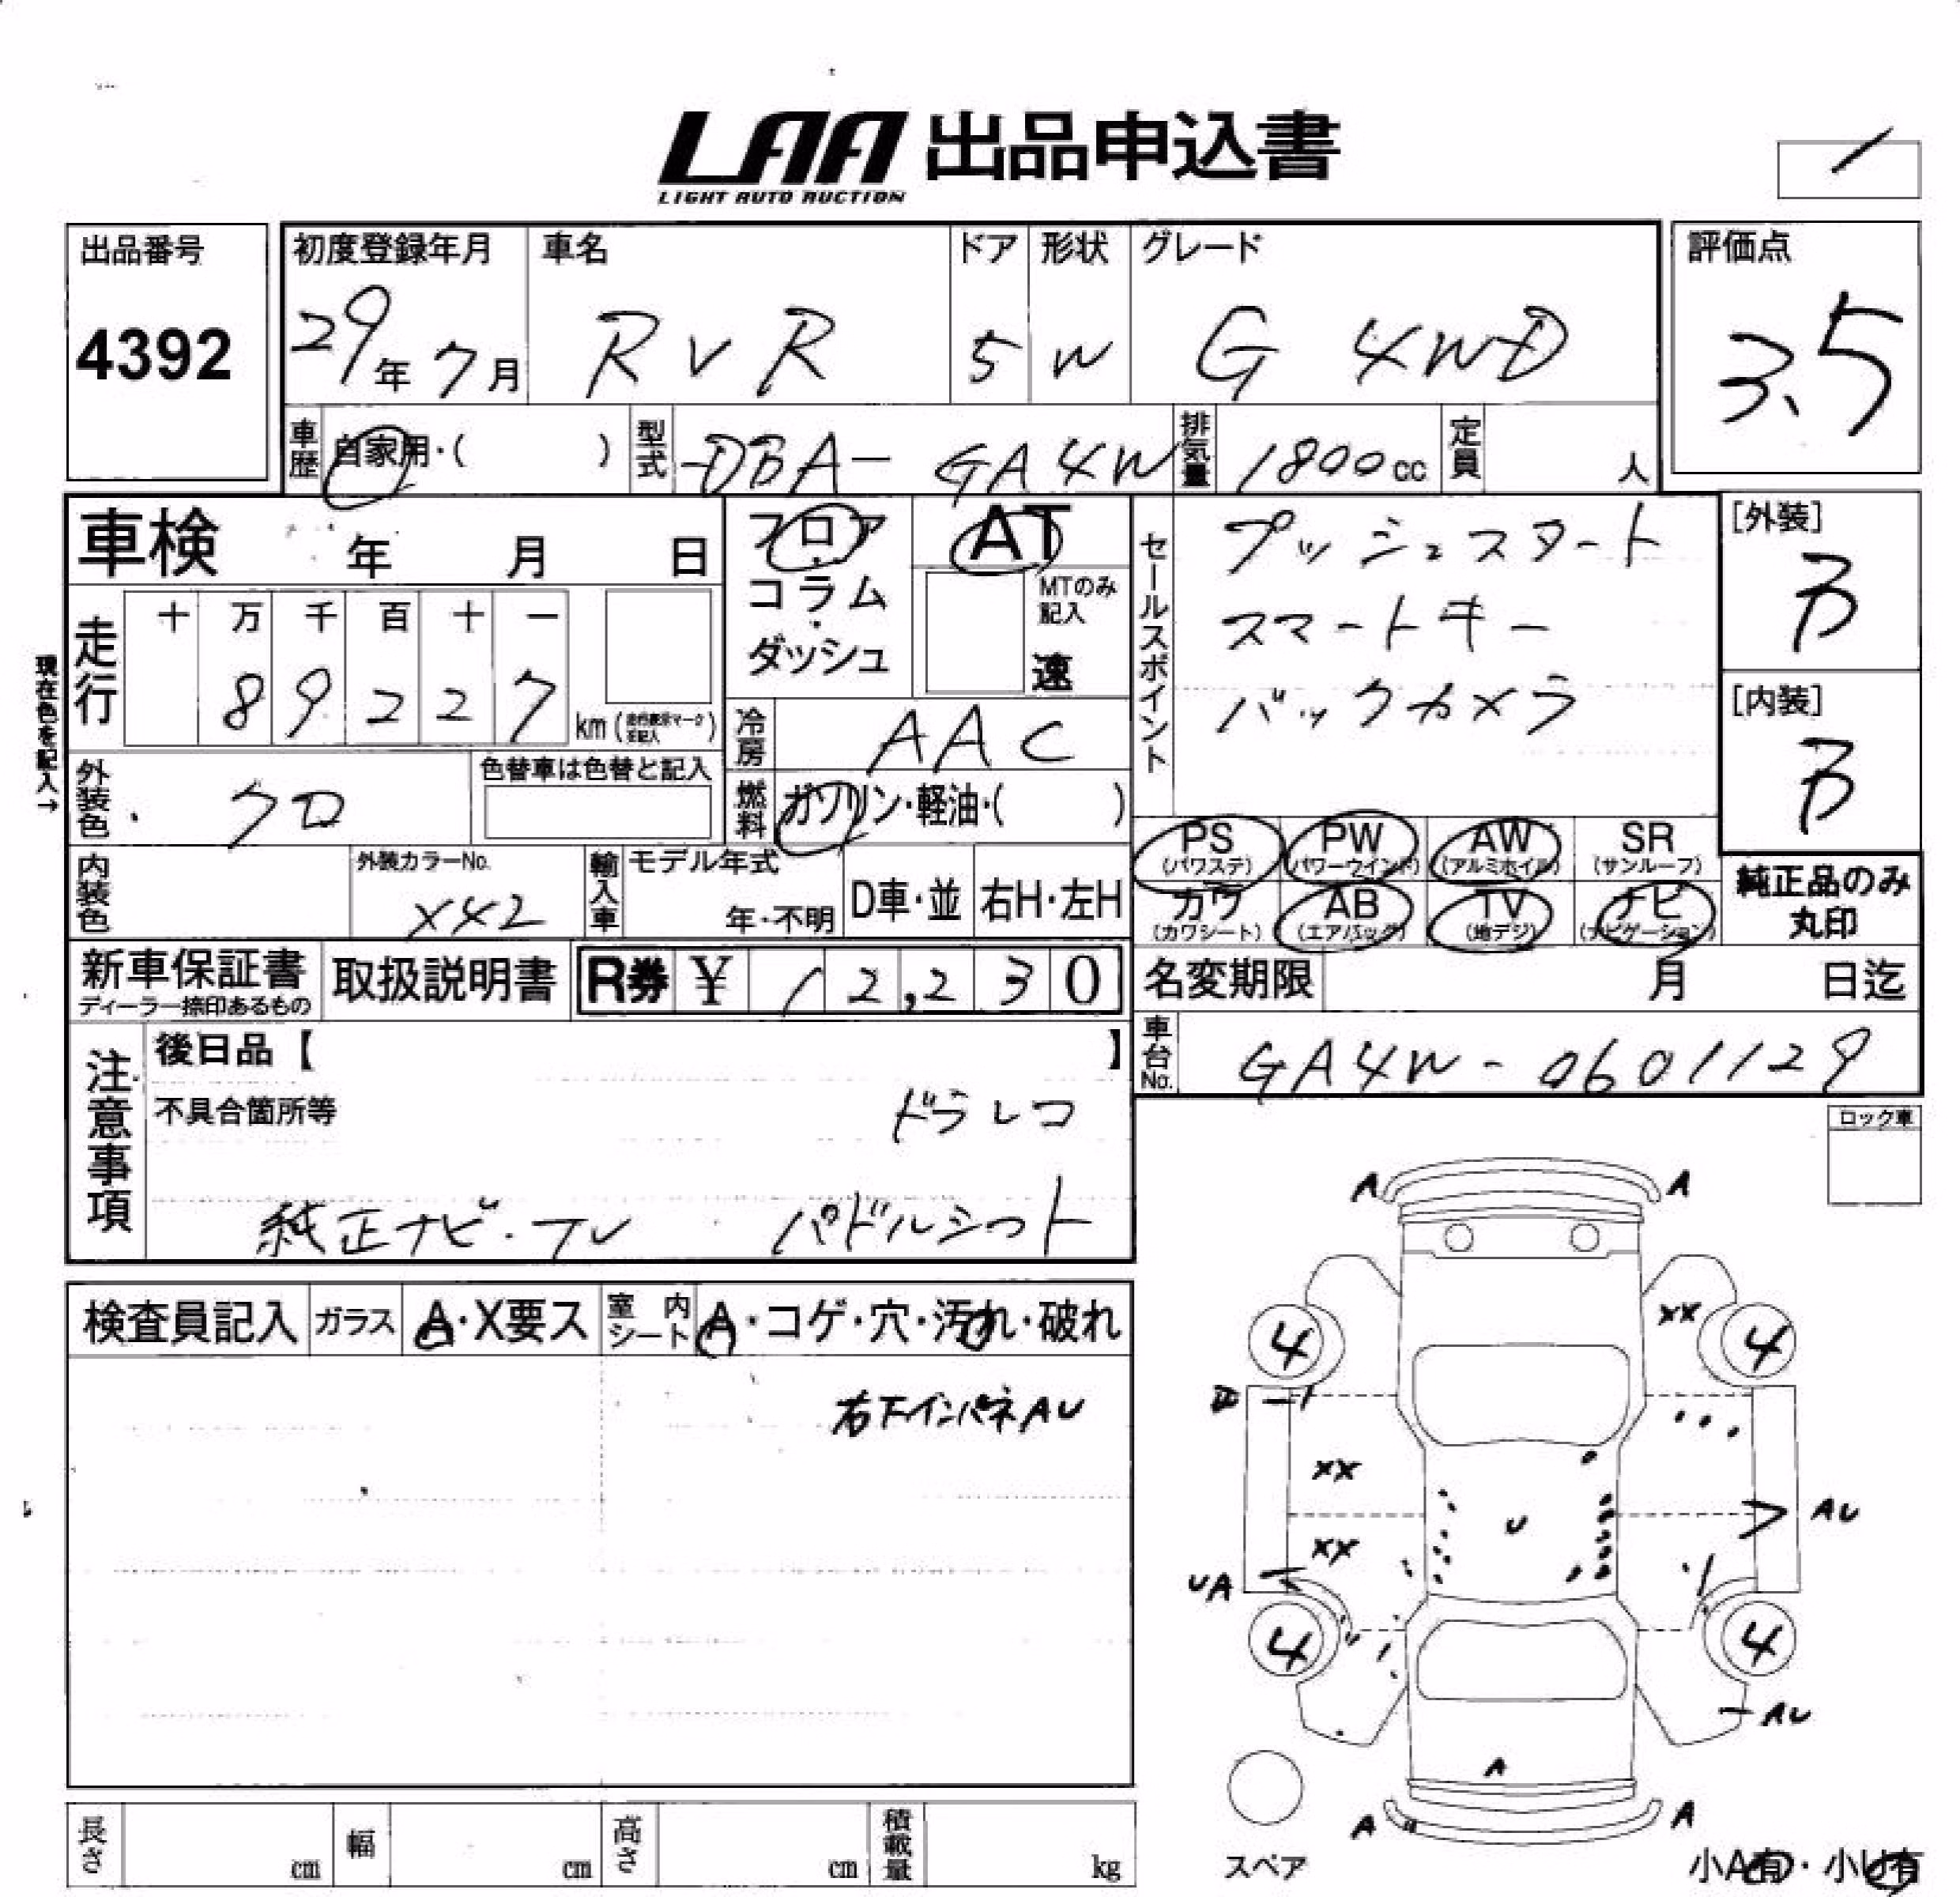 LAA 出品申込書
LIGHT AUTO AUCTION
出品番号
4392
初度登録年月
29年7月
車名
RVR
ドア
5
形状
W
グレード
G 4WD
評価点
3.5
車歴
自家用・( )
型式
DBA-GA4W
排気量
1800cc
定員
人
車検 年 月 日
フロア・コラム・ダッシュ
AT
MTのみ記入
速
セールスポイント
プッシュスタート
スマートキー
バックカメラ
[外装]
B
[内装]
B
現在色を記入→
走行
十 万 千 百 十 一
8 9 2 2 7
km
冷房
AAC
外装色
クロ
色替車は色替と記入
燃料
ガソリン・軽油・( )
PS (パワステ)
PW (パワーウインド)
AW (アルミホイル)
SR (サンルーフ)
カワ (カワシート)
AB (エアバッグ)
TV (地デジ)
ナビ (ナビゲーション)
純正品のみ
丸印
内装色
外装カラーNo.
X42
輸入車
モデル年式
年・不明
D車・並
右H・左H
新車保証書
ディーラー捺印あるもの
取扱説明書
R券 ¥ 12,230
名変期限 月 日迄
車台No.
GA4W-0601129
注意事項
後日品【 】
不具合箇所等
ドラレコ
純正ナビ・TV パドルシフト
ロック車
検査員記入
ガラス
A・X要ス
室内シート
A・コゲ・穴・汚れ・破れ
右下インパネAU
A A
XX
4 4
XX
U
AU
XX
UA
4 4
AU
A
A A
スペア
小A有・小U有
長さ cm
幅 cm
高さ cm
積載量 kg